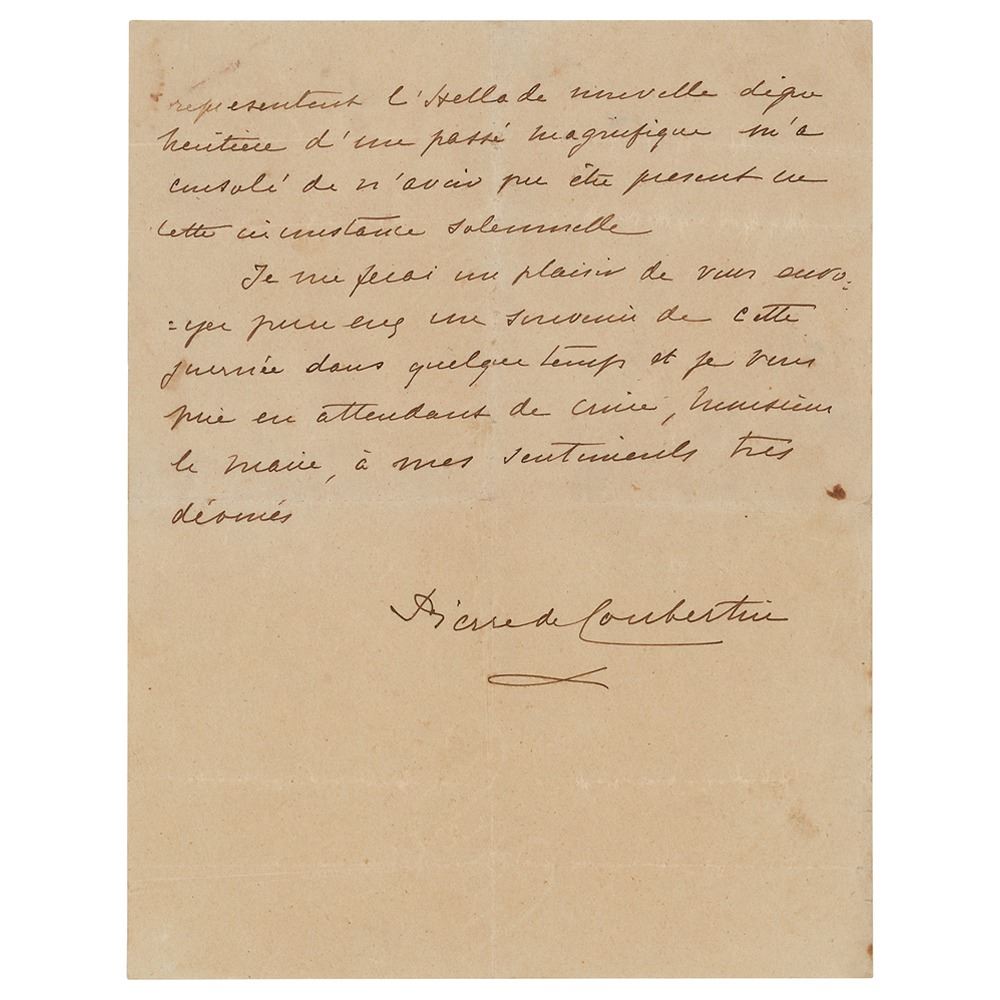 representent l'Hellade nouvelle digne
héritière d'un passé magnifique m'a
consolé de n'avoir pu être present en
cette circonstance solennelle
Je me ferai un plaisir de vous envo-
=yer pour eux un souvenir de cette
journée dans quelque temps et je vous
prie en attendant de croire, Monsieur
le Maire, à mes sentiments très
dévoués
Pierre de Coubertin